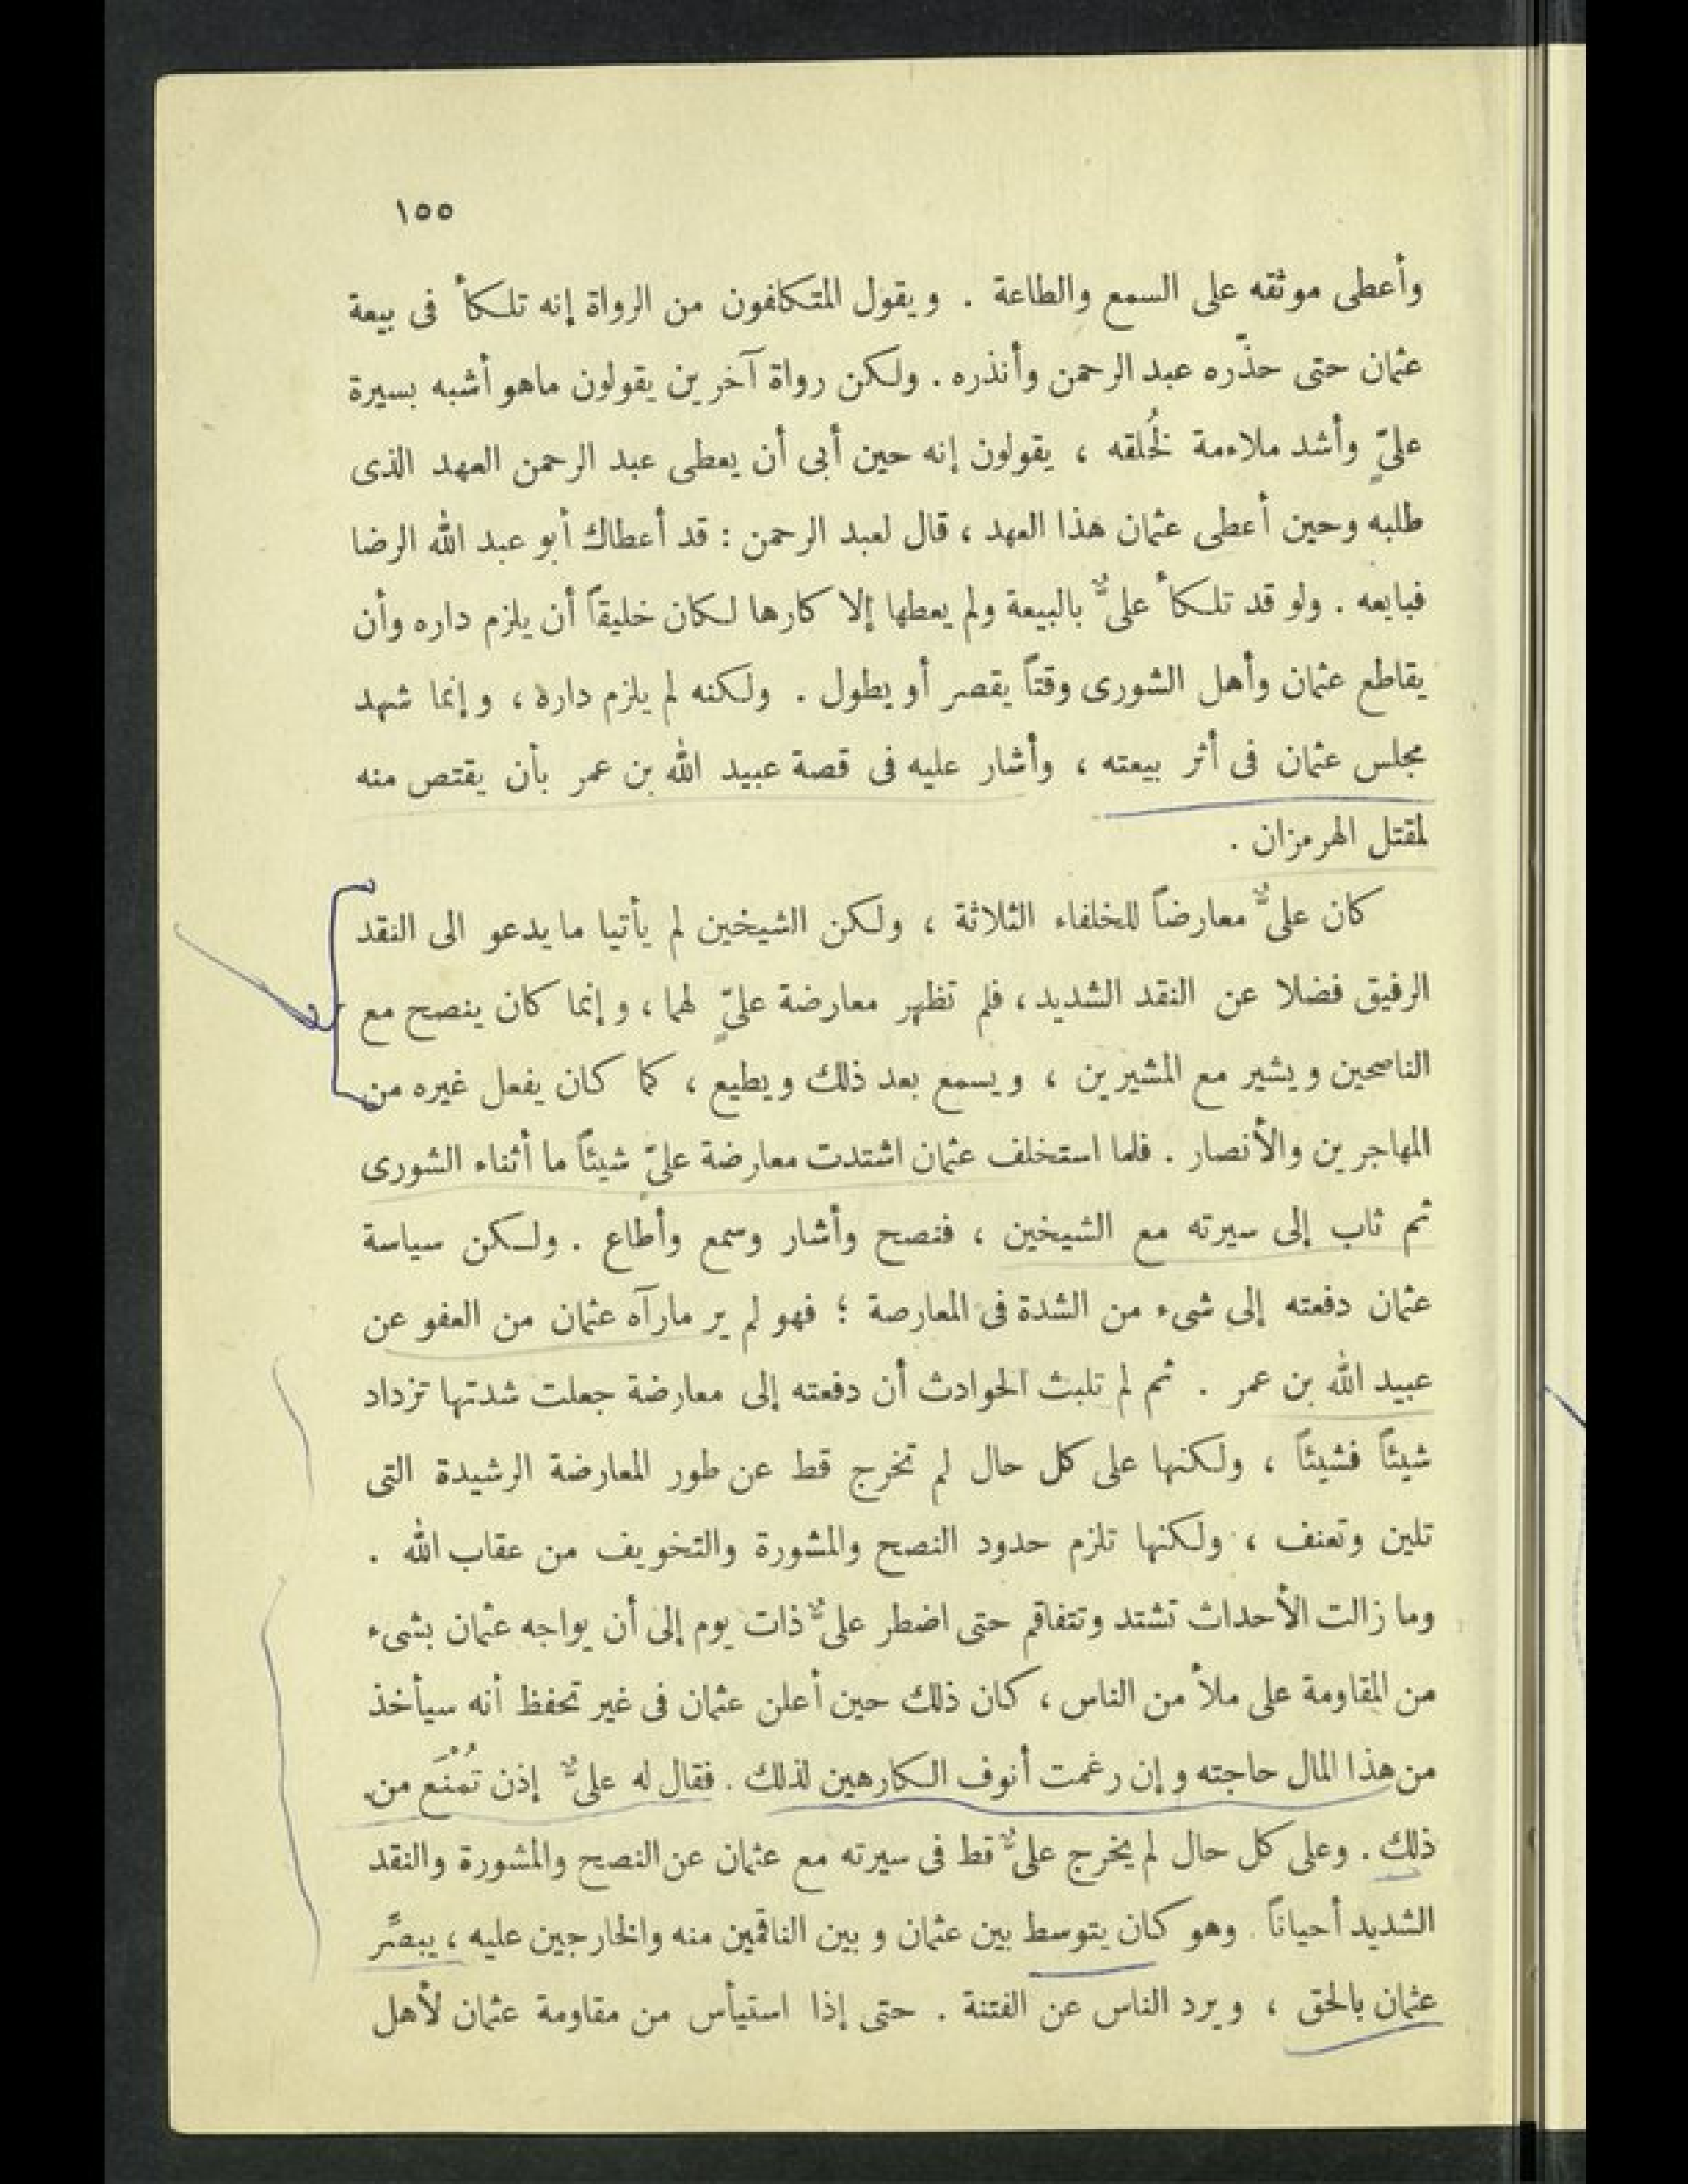 ١٥٥
وأعطى موثقه على السمع والطاعة . ويقول المتكلفون من الرواة إنه تلكأ فى بيعة
عثمان حتى حذّره عبد الرحمن وأنذره . ولكن رواة آخرين يقولون ماهو أشبه بسيرة
علىّ وأشد ملاءمة لخُلقه ، يقولون إنه حين أبى أن يعطى عبد الرحمن العهد الذى
طلبه وحين أعطى عثمان هذا العهد ، قال لعبد الرحمن : قد أعطاك أبو عبد الله الرضا
فبايعه . ولو قد تلكأ علىٌّ بالبيعة ولم يعطها إلا كارها لكان خليقاً أن يلزم داره وأن
يقاطع عثمان وأهل الشورى وقتاً يقصر أو يطول . ولكنه لم يلزم داره ، وإنما شهد
مجلس عثمان فى أثر بيعته ، وأشار عليه فى قصة عبيد الله بن عمر بأن يقتص منه
لمقتل الهرمزان .
كان علىٌّ معارضاً للخلفاء الثلاثة ، ولكن الشيخين لم يأتيا ما يدعو الى النقد
الرفيق فضلا عن النقد الشديد ، فلم تظهر معارضة علىٍّ لهما ، وإنما كان ينصح مع
الناصحين ويشير مع المشيرين ، ويسمع بعد ذلك ويطيع ، كما كان يفعل غيره من
المهاجرين والأنصار . فلما استخلف عثمان اشتدت معارضة علىّ شيئاً ما أثناء الشورى
ثم ثاب إلى سيرته مع الشيخين ، فنصح وأشار وسمع وأطاع . ولكن سياسة
عثمان دفعته إلى شىء من الشدة فى المعارصة ؛ فهو لم ير مارآه عثمان من العفو عن
عبيد الله بن عمر . ثم لم تلبث الحوادث أن دفعته إلى معارضة جعلت شدتها تزداد
شيئاً فشيئاً ، ولكنها على كل حال لم تخرج قط عن طور المعارضة الرشيدة التى
تلين وتعنف ، ولكنها تلزم حدود النصح والمشورة والتخويف من عقاب الله .
وما زالت الأحداث تشتد وتتفاقم حتى اضطر علىٌّ ذات يوم إلى أن يواجه عثمان بشىء
من المقاومة على ملأ من الناس ، كان ذلك حين أعلن عثمان فى غير تحفظ أنه سيأخذ
من هذا المال حاجته وإن رغمت أنوف الكارهين لذلك . فقال له علىٌّ إذن تُمْنَع من
ذلك . وعلى كل حال لم يخرج علىٌّ قط فى سيرته مع عثمان عن النصح والمشورة والنقد
الشديد أحياناً . وهو كان يتوسط بين عثمان وبين الناقمين منه والخارجين عليه ، يبصَّر
عثمان بالحق ، ويرد الناس عن الفتنة . حتى إذا استيأس من مقاومة عثمان لأهل